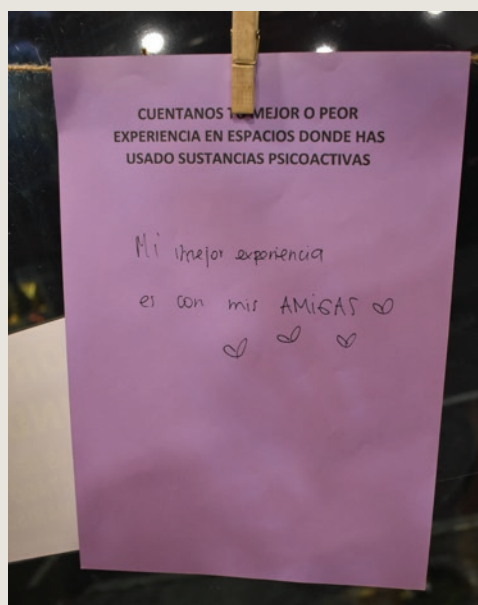 CUENTANOS TU MEJOR O PEOR
EXPERIENCIA EN ESPACIOS DONDE HAS
USADO SUSTANCIAS PSICOACTIVAS
Mi mejor experiencia
es con mis AMIGAS